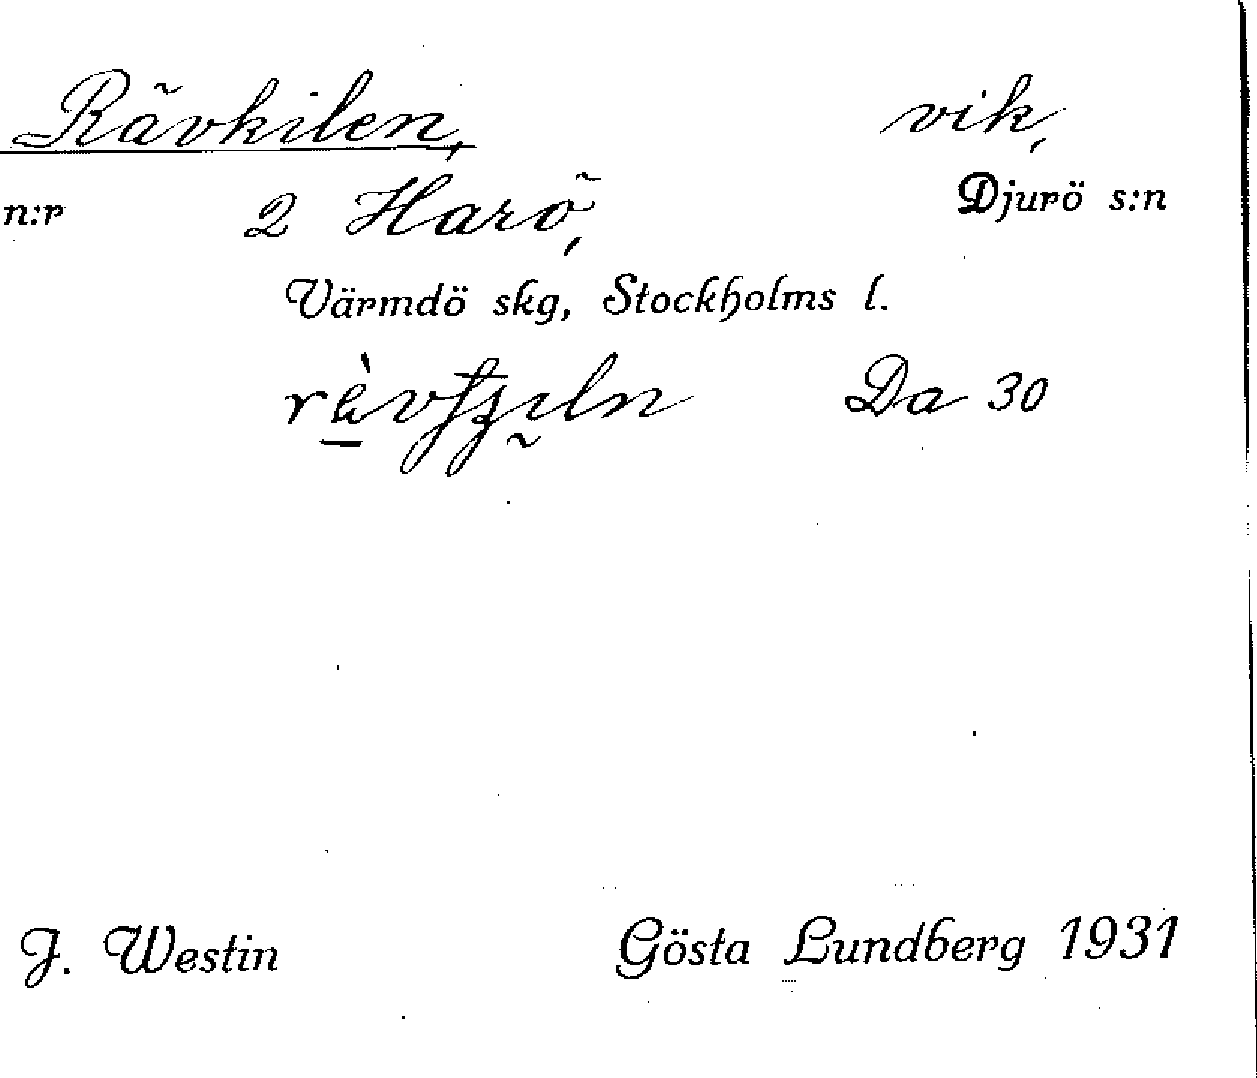 Rävkilen, vik,
n:r 2 Harö, Djurö s:n
Värmdö skg, Stockholms l.
Da 30
J. Westin Gösta Lundberg 1931